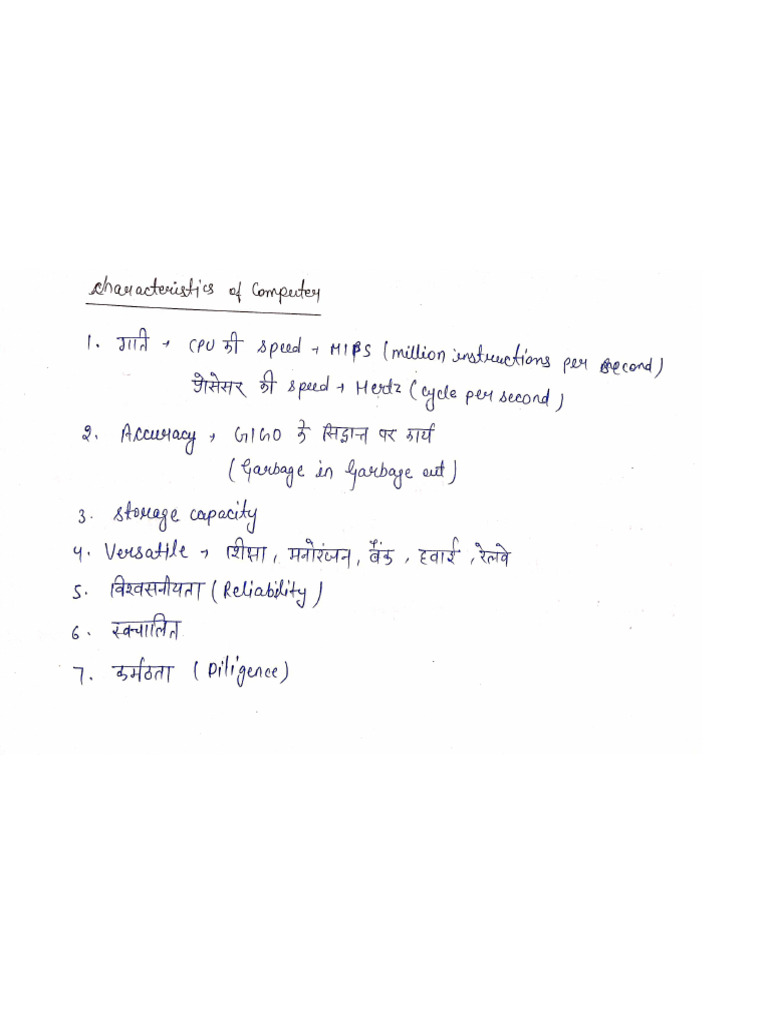 Characteristics of Computer
1. गति → CPU की speed → MIPS (million instructions per second)
प्रोसेसर की speed → Hertz (cycle per second)
2. Accuracy → GIGO के सिद्धान्त पर कार्य
(Garbage in Garbage out)
3. Storage capacity
4. Versatile → शिक्षा, मनोरंजन, बैंक, हवाई, रेलवे
5. विश्वसनीयता (Reliability)
6. स्वचालित
7. कर्मठता (Diligence)